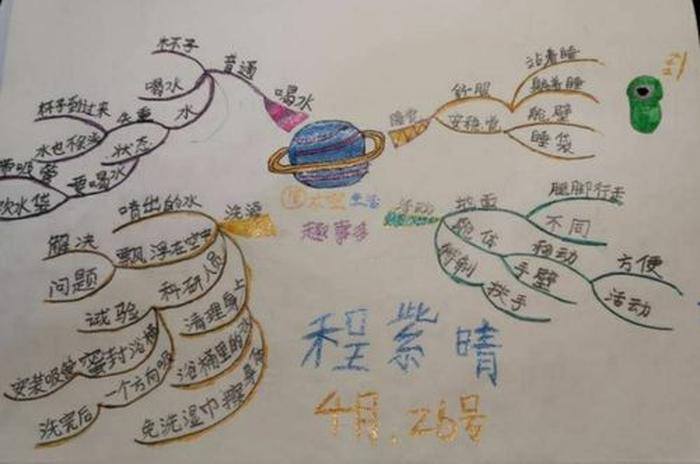 杯子
普通
喝水
喝水
水
杯子到过来
失重
水也不会
状态
带吸管
要喝水
饮水袋
睡觉
舒服
站着睡
躺着睡
安稳觉
舱壁
睡袋
在太空生活
趣事多
洗澡
喷出的水
飘浮在空中
解决
问题
科研人员
试验
清理身上
密封浴桶
安装吸管
浴桶里的水
一个方向吸
洗完后
免洗湿巾擦身体
活动
地面
腿脚行走
不同
舱体
移动
手臂
方便
活动
扶手
程紫晴
4月.26号